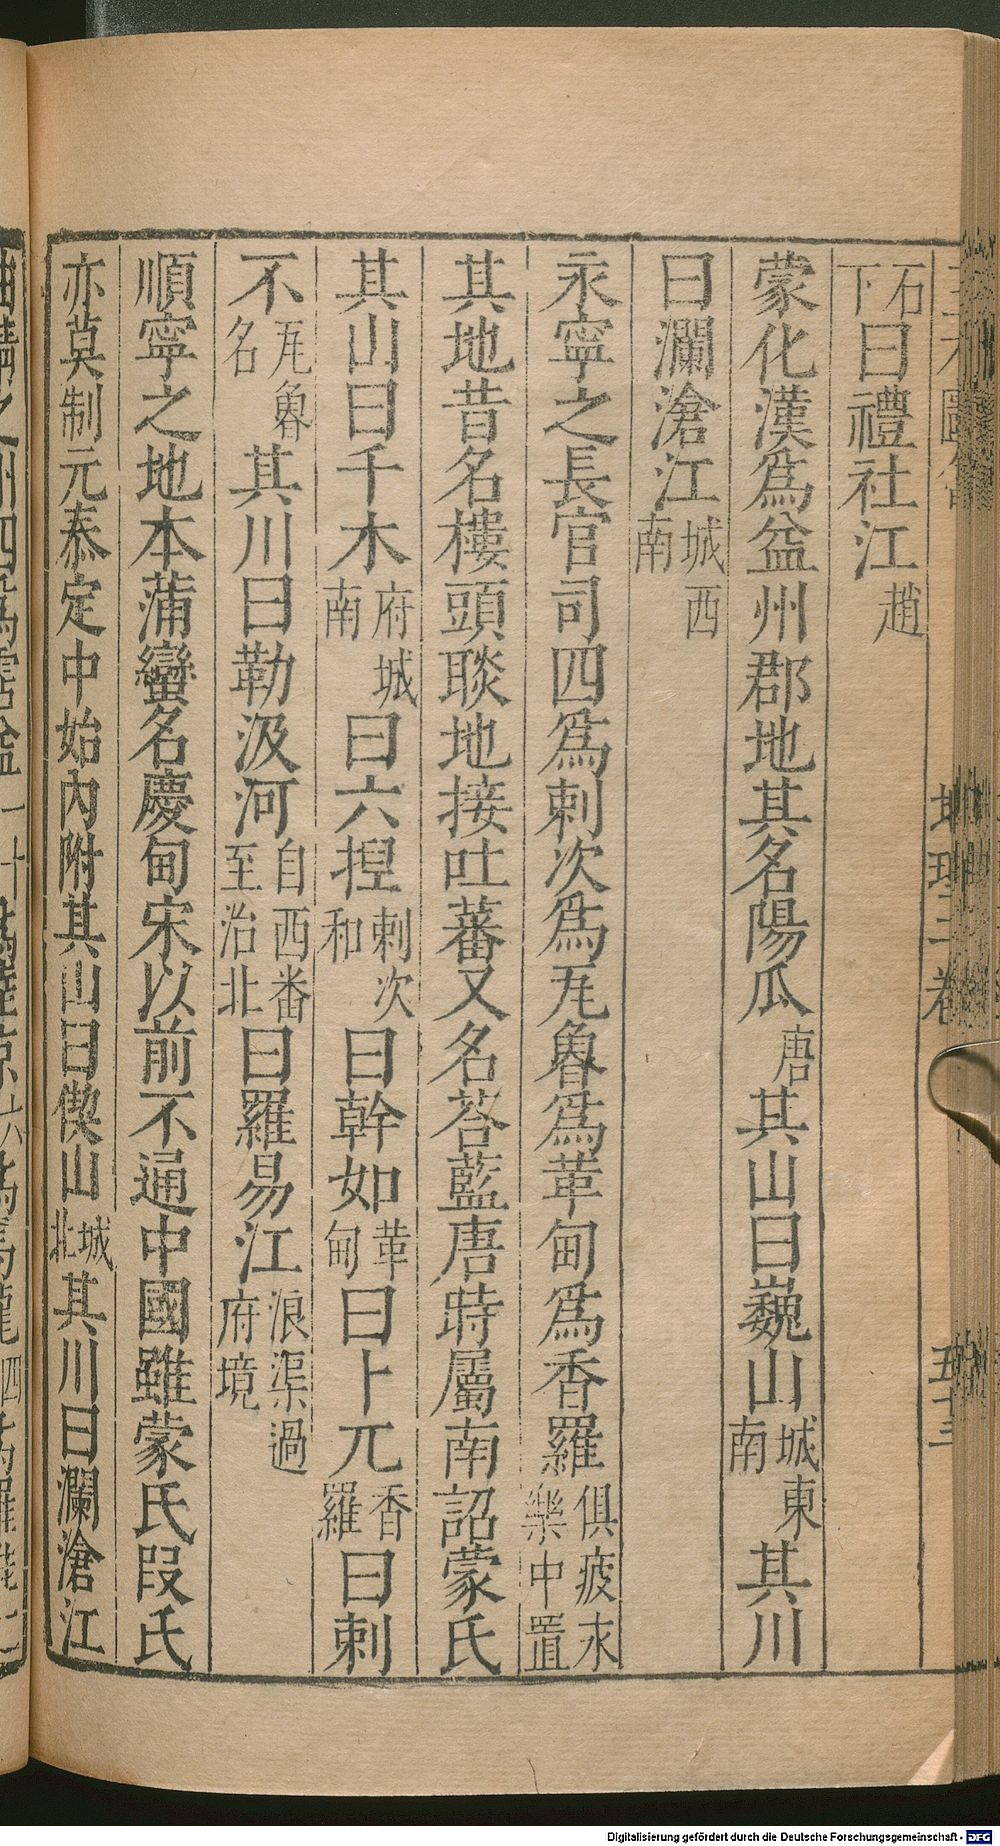 石下曰禮社江趙
蒙化漢爲益州郡地其名陽瓜唐其山曰巍山城東南其川
曰瀾滄江城西南
永寧之長官司四爲剌次和爲瓦魯爲革甸爲香羅俱疲永樂中置
其地昔名樓頭睒地接吐蕃又名荅藍唐時屬南詔蒙氏
其山曰千木府城南曰六揑剌次和曰幹如革甸曰卜兀香羅曰剌
不瓦魯名其川曰勒汲河自西番至治北曰羅易江浪渠過府境
順寧之地本蒲蠻名慶甸宋以前不通中國雖蒙氏段氏
亦莫制元泰定中始內附其山曰㑮山城北其川曰瀾滄江
地理二卷
五十三
Digitalisierung gefördert durch die Deutsche Forschungsgemeinschaft - DFG